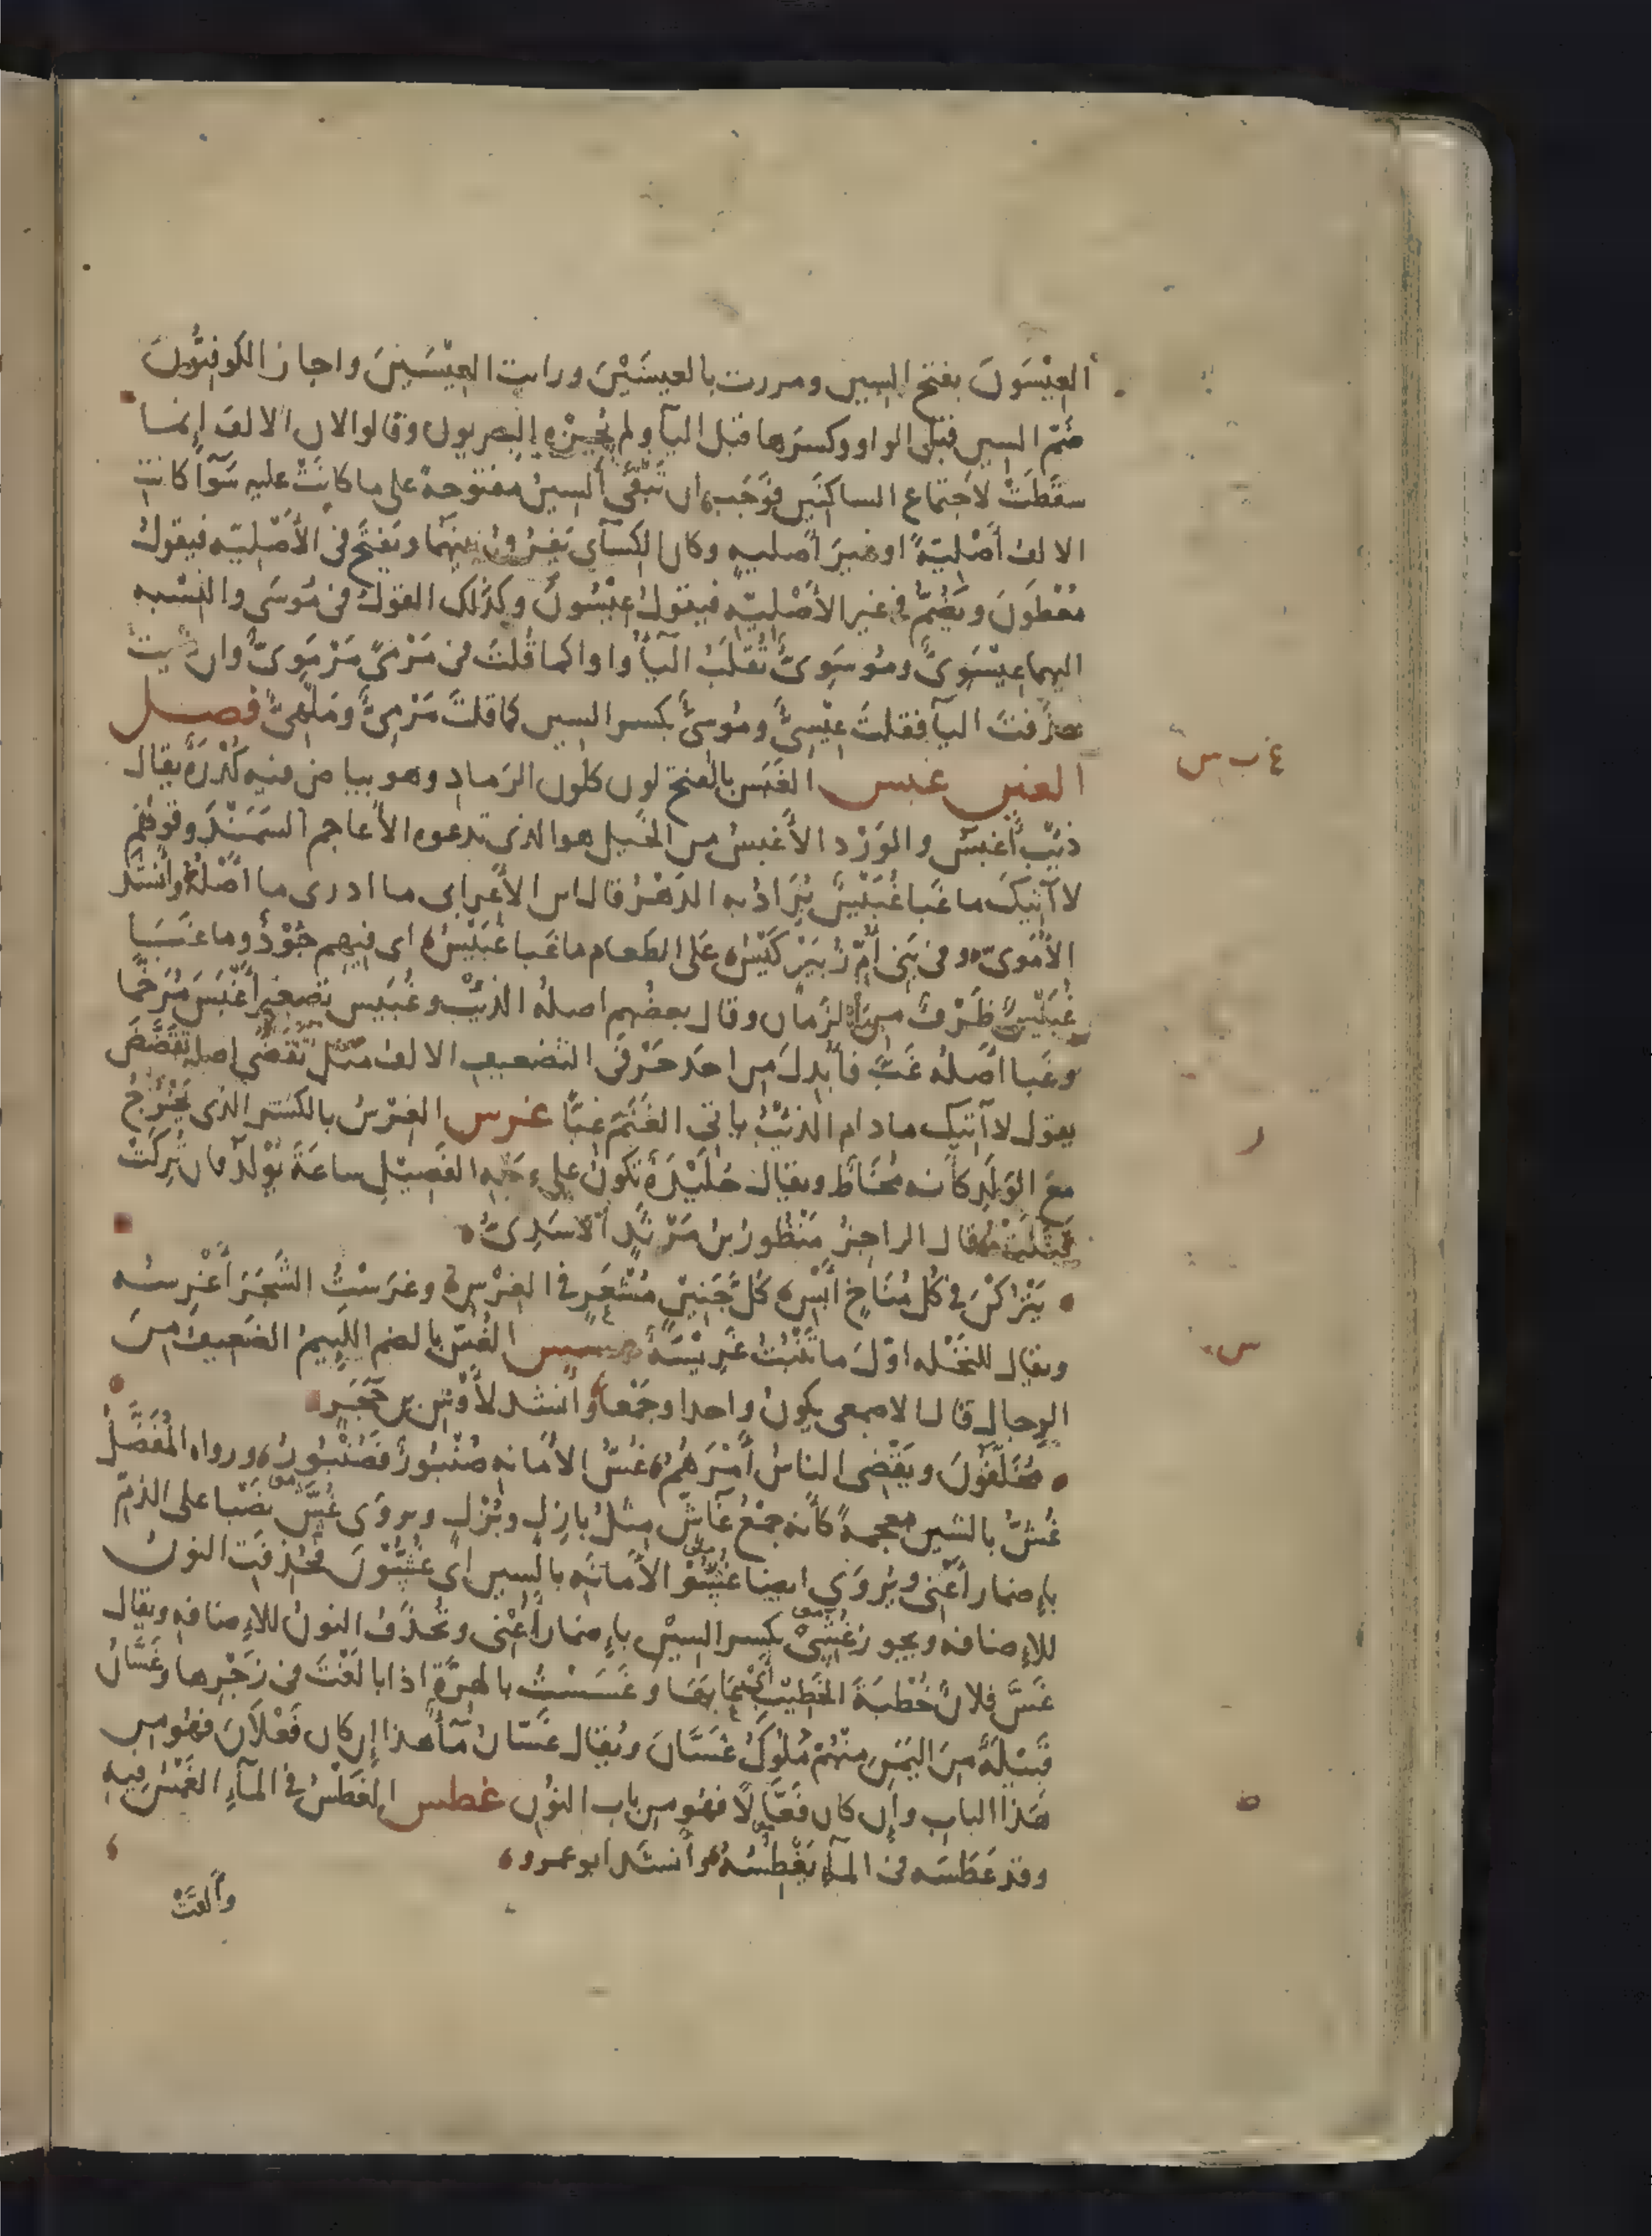 العِيْسَوْنَ بفتح السين ومررت بالعيسَيْنَ ورايت العِيْسَيْنَ واجاز الكوفيُّونَ
ضَمّ السين قبل الواو وكسرَها قبل اليآ ولم يُجِزْه البصريون وقالوا لان الالف إنما
سقَطَتْ لاجتماع الساكنَين فوَجَب ان تَبْقَى السينُ مفتوحةً على ما كانَتْ عليه سَوآ كانت
الالف أَصْليّةً او غيرَ أصليه وكان الكسآى يَفرُق بينهما ويَفتَح فى الأَصْليّه فيقولُ
مُعْطَونَ ويَضُمُّ فى غير الأَصْليّه فيقولُ عِيْسُونَ وكذلك القولُ فى مُوسَى والنِسْبه
اليهما عِيْسَوِىّ ومُوسَوِىّ تُقلَبُ اليآُ واوا كما قُلتَ فى مَرْمىً مَرْمَوِىٌّ وان شيت
حذفتَ اليآ فقلتَ عِيْسِىٌّ ومُوسِىٌّ بكسر السين كما قلتَ مَرْمِىٌّ ومَلْهِىٌّ فصل
الغين غبس الغَبَس بالفتح لون كلون الرَماد وهو بياض فيه كُدْرَةٌ يقال
ذئبٌ أَغبَسُ والوَرْد الأَغبسُ من الخيل هو الذى تدعوه الأعاجم السَمَنْدَ وقولهُم
لا آتيكَ ما غَبا غُبَيْسٌ يُرَادُ به الدَهْرُ قال ابن الأعرابى ما ادرى ما أصْلُهُ وأنشَد
الأُمَوىّ وفى بَنى أُمّ زُبَيْر كَيْسُ على الطعام ما غبا غُبَيْسُ اى فيهم جُوْدٌ وما غَبَا
غُبَيْسٌ ظَرْفٌ مِنَ الزمان وقال بعضُهم اصلهُ الذيْبُ وغُبَيس تصغير أَغْبَسَ مُرَخَّما
وغَبا أَصلُه غَبَّ فأُبدِلَ من احَد حَرْفَىِ التضعيف الالف مثل تَقَضَّى اصله تَقَضَّضَ
يقول لا آتيك ما دام الذئبُ ياتى الغَنَم غِبًّا غرس الغِرْسُ بالكسر الذى يَخْرُجُ
مَعَ الوَلَدِ كأنه مُخَاط ويقال جُلَيْدَةٌ تكونُ على وَجْهِ الفَصِيْلِ ساعَةَ يُولَدُ فان تُرِكَتْ
قَتَلَتْهُ قال الراجزُ مَنْظُورُ بن مَرْثَدٍ الاسَدِىُّ
يَتْرُكْنَ فى كُل مُنَاخٍ أَبْسِ كُلَّ جَنِيْنٍ مُشْعَرٍ فى الغِرْسِ وغرَسْتُ الشَجَرَ أَغْرِسُه
ويقال للنَخْله اوّلَ ما تَنْبُتُ غَرِيْسَةٌ غسس الغُسُّ بالضم اللئيمُ الضعيفُ مِنَ
الرِجال قال الاصمعى يكونُ واحدا وجَمْعا وأنشد لأَوْسِ بن حَجَر
مُخَلَّفُونَ ويَقْضِى الناسُ أَمْرَهُمُ غُسُّ الأمانه صُنْبُورٌ فصُنْبُورُ ورواه المُفَضَّلُ
غُشُّ بالشين معجمةً كأنه جمْعُ غَآشّ مثلُ بازِلٍ وبُزْلٍ ويروَى غُسَّ نَصْبا على الذمّ
بإضمار أَعْنى ويُروَى ايضا غُسُّو الأَمانَه بالسين أى غُسُّوْنَ فحُذِفَت النونُ
للإضافه ويجوز غُسِّىْ بكسر السين بإضمار أَعْنى وتُحذَفُ النونُ للإضافه ويقال
غَسَّ فلانٌ خُطْبَةَ الخَطِيْب أى عَابَهَا وغَسَسْتُ بالهِرَّةِ اذا بالَغْتَ فى زَجْرِها وغَسَّانُ
قَبيْلَةٌ مِنَ اليَمَنِ مِنْهُمْ مُلُوكُ غَسَّانَ ويُقال غَسّانُ مَآءٌ هذا إن كان فَعْلاَنَ فهُو من
هَذا الباب وإن كان فَعَّالًا فهُو من باب النُون غطس الغَطْسُ فى المآء الغَمْسُ فيه
وقد غَطَسَه فى المآ يَغْطِسُهُ وأنشَد ابو عمرو
وألقَتْ
غ ب س
ر
س
ط